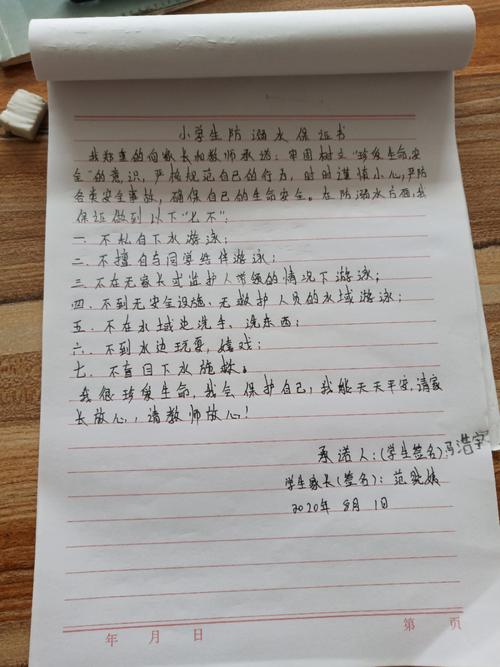 小学生防溺水保证书
我郑重的向家长和教师承诺：牢固树立“珍爱生命，安
全”的意识，严格规范自己的行为，时时谨慎小心，严防
各类安全事故，确保自己的生命安全。在防溺水方面，我
保证做到以下“七不”：
一．不私自下水游泳；
二．不擅自与同学结伴游泳；
三．不在无家长或监护人带领的情况下游泳；
四．不到无安全设施、无救护人员的水域游泳；
五．不在水域边洗手、洗东西；
六．不到水边玩耍，嬉戏；
七．不盲目下水施救。
我很珍爱生命，我会保护自己，我能天天平安，请家
长放心，请教师放心！
承诺人：(学生签名)冯浩宇
学生家长(签名)：范
2020年 8月 1日
年 月 日 第 页